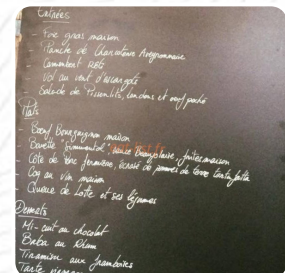 Entrées
- Foie gras maison
- Planche de Charcuterie Aveyronnaise
- Camembert Rôti
- Vol au vent d'escargots
- Salade de Pissenlits, lardons et oeuf poché
Plats
- Boeuf Bourguignon maison
- Bavette "Simmental", sauce Beaujolaise, frites maison
- Côte de Porc fermière, écrasé de pommes de terre
- Coq au vin maison
- Queue de Lotte et ses légumes
Desserts
Mi-cuit au chocolat
Baba au Rhum
Tiramisu aux framboises
Tarte